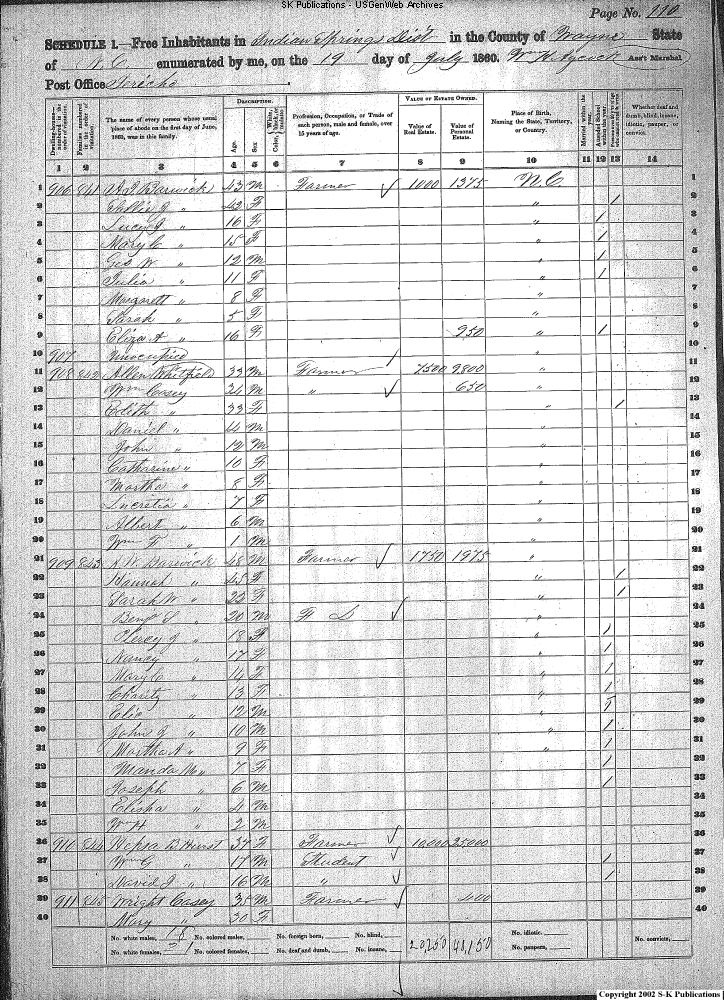 SK Publications - USGenWeb Archives
Page No. 110
SCHEDULE 1.—Free Inhabitants in Indian Springs Dist in the County of Wayne State
of N. C. enumerated by me, on the 19 day of July 1860. Wm H. Aycock Ass't Marshal
Post Office Jericho
Dwelling-house— numbered in the order of visitation.
Families numbered in the order of visitation.
The name of every person whose usual place of abode on the first day of June, 1860, was in this family.
DESCRIPTION.
Age.
Sex.
Color, White, black, or mulatto.
Profession, Occupation, or Trade of each person, male and female, over 15 years of age.
VALUE OF ESTATE OWNED.
Value of Real Estate.
Value of Personal Estate.
Place of Birth, Naming the State, Territory, or Country.
Married within the year.
Attended School within the year.
Whether deaf and dumb, blind, insane, idiotic, pauper, or convict.
1 2 3 4 5 6 7 8 9 10 11 12 13 14
1 906 841 Barwick 43 M Farmer 1000 1375 N.C. 1
2 " 42 F " / 2
3 Lucy J " 16 F " / 3
4 Mary C " 15 F " / 4
5 Geo W. " 12 M " / 5
6 Julia " 11 F " / 6
7 " 8 F " 7
8 Sarah " 5 F " 8
9 Eliza A " 16 F 950 " / 9
10 907 Unoccupied 10
11 908 842 Allen Whitfield 33 M Farmer 7500 9800 " 11
12 Wm Casey 34 M " 650 " 12
13 Edith " 33 F " / 13
14 Daniel " 14 M " 14
15 John " 12 M " 15
16 Catharine " 10 F " 16
17 Martha " 8 F " 17
18 Lucretia " 7 F " 18
19 Albert " 6 M " 19
20 Wm F " 1 M " 20
21 909 843 A. W. Barwick 48 M Farmer 1750 1975 " 21
22 Hannah " 45 F " / 22
23 Sarah W. " 22 F " / 23
24 Benj S " 20 M F L " 24
25 " 18 F " / 25
26 Nancy " 17 F " / 26
27 Mary C " 14 F " / 27
28 Charity " 13 F " / 28
29 " 12 M " 1 29
30 John J " 10 M " / 30
31 Martha A " 9 F " / 31
32 Manda M " 7 F / 32
33 Joseph " 6 M / 33
34 Elisha " 4 M 34
35 Wm H " 2 M 35
36 910 844 Hepsa B Hurst 37 F Farmer 10,000 25000 36
37 Wm G " 17 M Student / 37
38 David J " 16 M " / 38
39 911 845 Wright Casey 35 M Farmer 400 39
40 Mary " 30 F 40
No. white males, 18 No. colored males, No. foreign born, No. blind, No. idiotic,
No. white females, 21 No. colored females, No. deaf and dumb, No. insane, 20,250 41,150 No. paupers, No. convicts,
Copyright 2002 S-K Publications